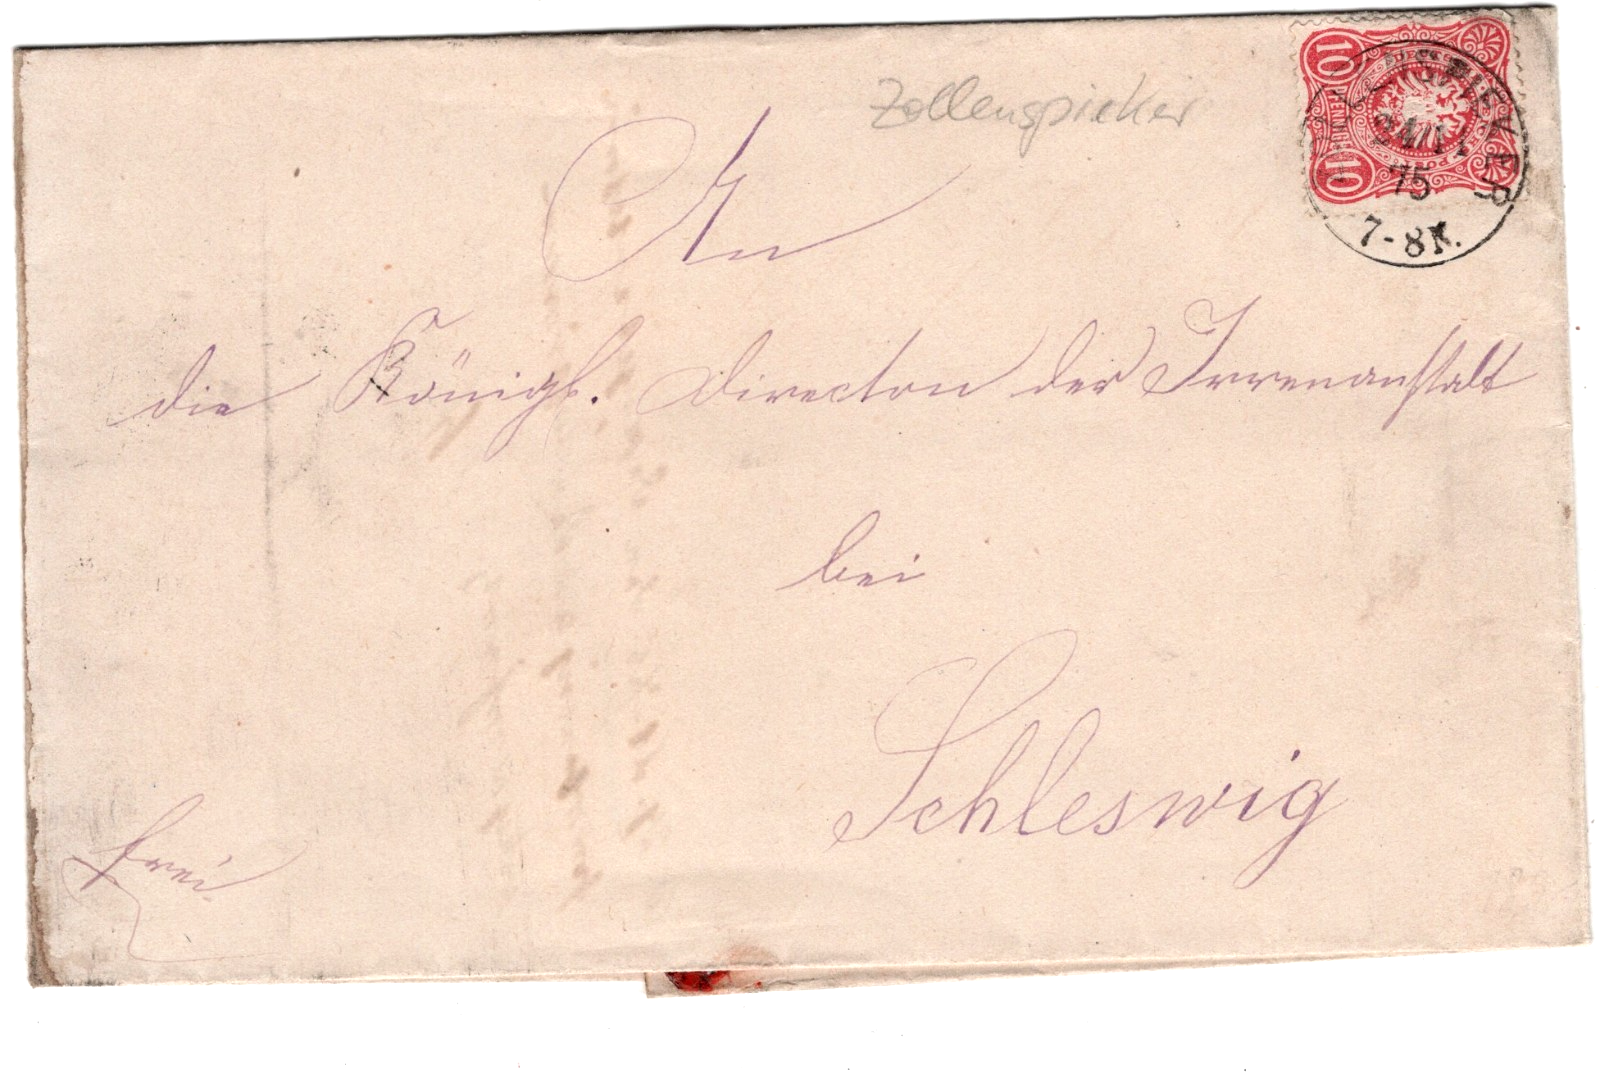 Zollenspieker
10
PFENNIGE
10
75
7-8N.
An
die Königl. Direction der Irrenanstalt
bei
Schleswig
frei